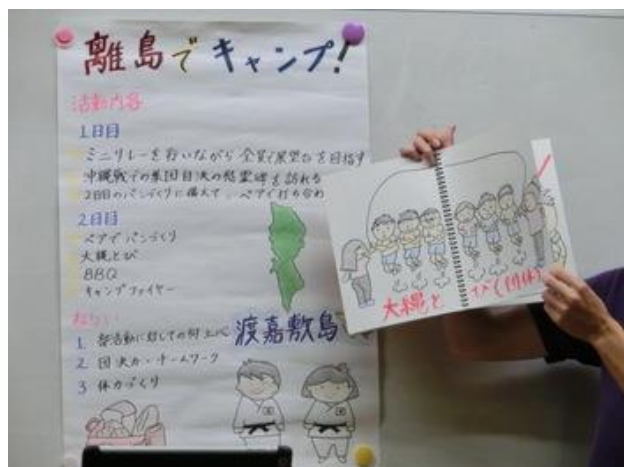 離島でキャンプ!
活動内容
1日目
ミニリレーを行いながら全員で展望台を目指す
沖縄戦での集団自決の慰霊碑を訪れる
2日目のパンづくりに備えてペアで打ち合わ
2日目
ペアでパンづくり
大縄とび
BBQ
キャンプファイヤー
ねらい
1 部活動に対しての向上心
2 団決力・チームワーク
3 体力づくり
渡嘉敷島
大縄と
(団体)